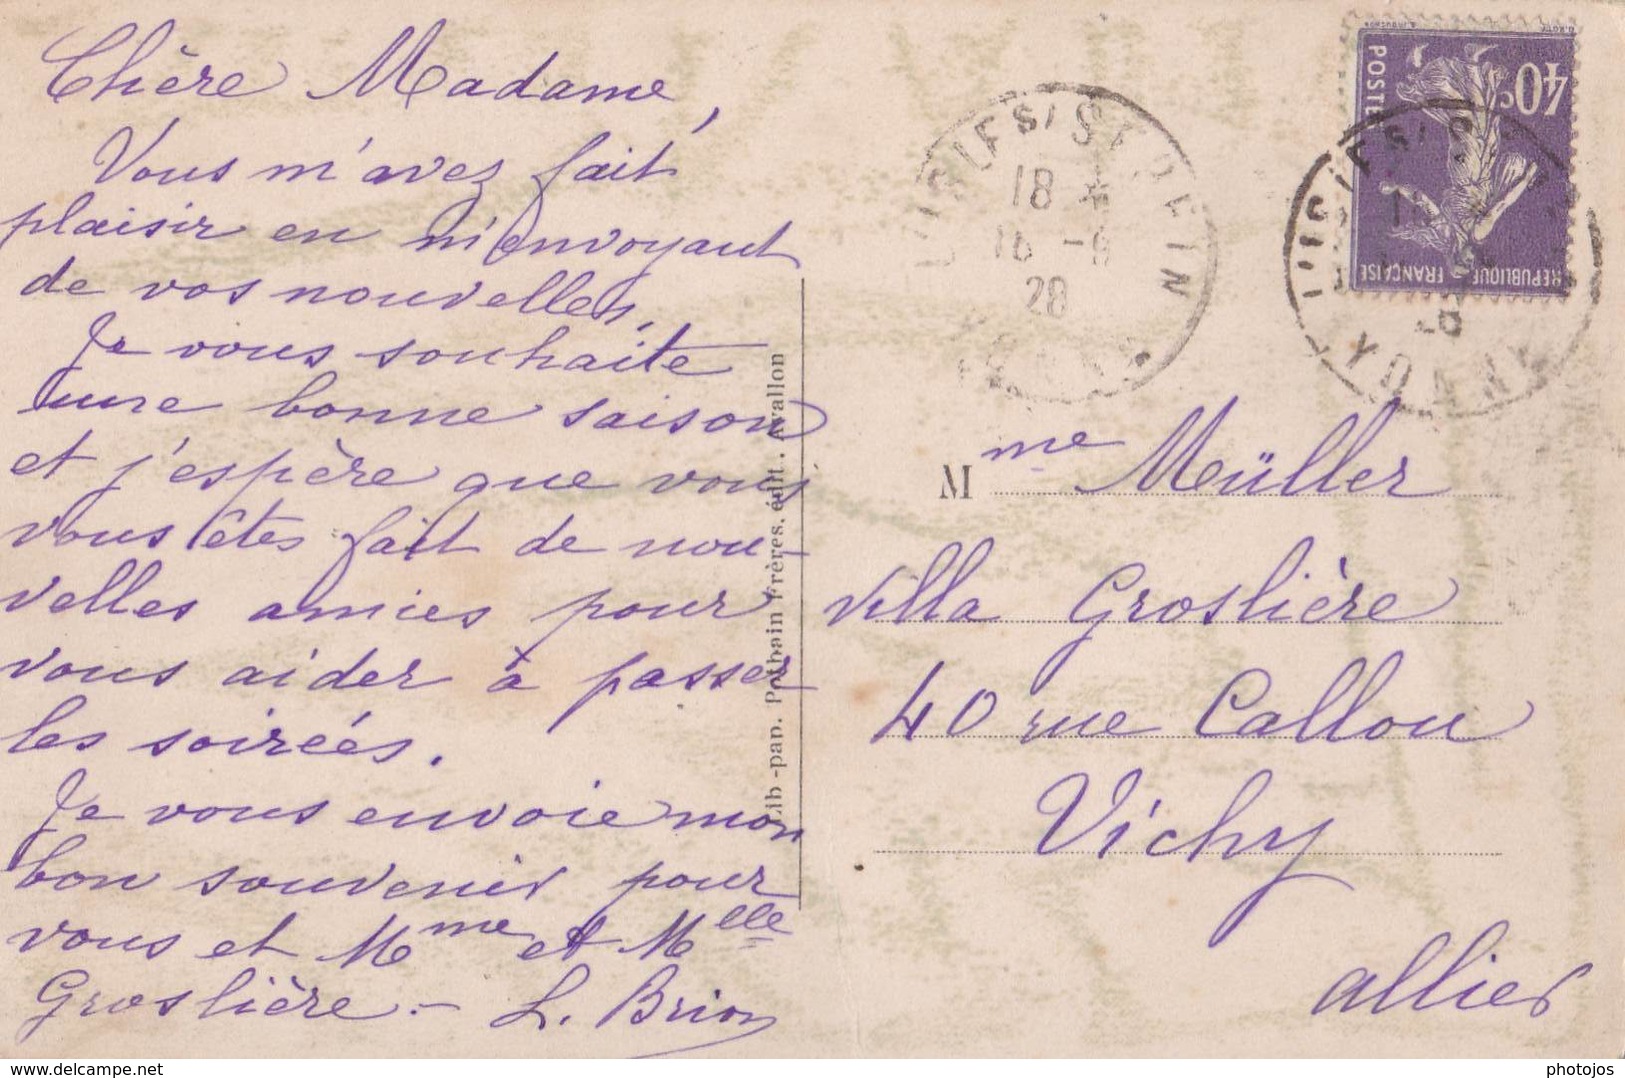 Chère Madame,
Vous m'avez fait
plaisir en m'envoyant
de vos nouvelles,
Je vous souhaite
une bonne saison
et j'espère que vous
vous êtes fait de nou-
velles amies pour
vous aider à passer
les soirées.
Je vous envoie mon
bon souvenir pour
vous et Mme et Mlle
Groslière - L. Brion
Lib-pap. Pothain Frères, édit., Avallon
18
16 - 6
28
40c
POSTES
REPUBLIQUE FRANÇAISE
YONNE
Mme Müller
villa Groslière
40 rue Callou
Vichy
Allier
delcampe.net
photojos